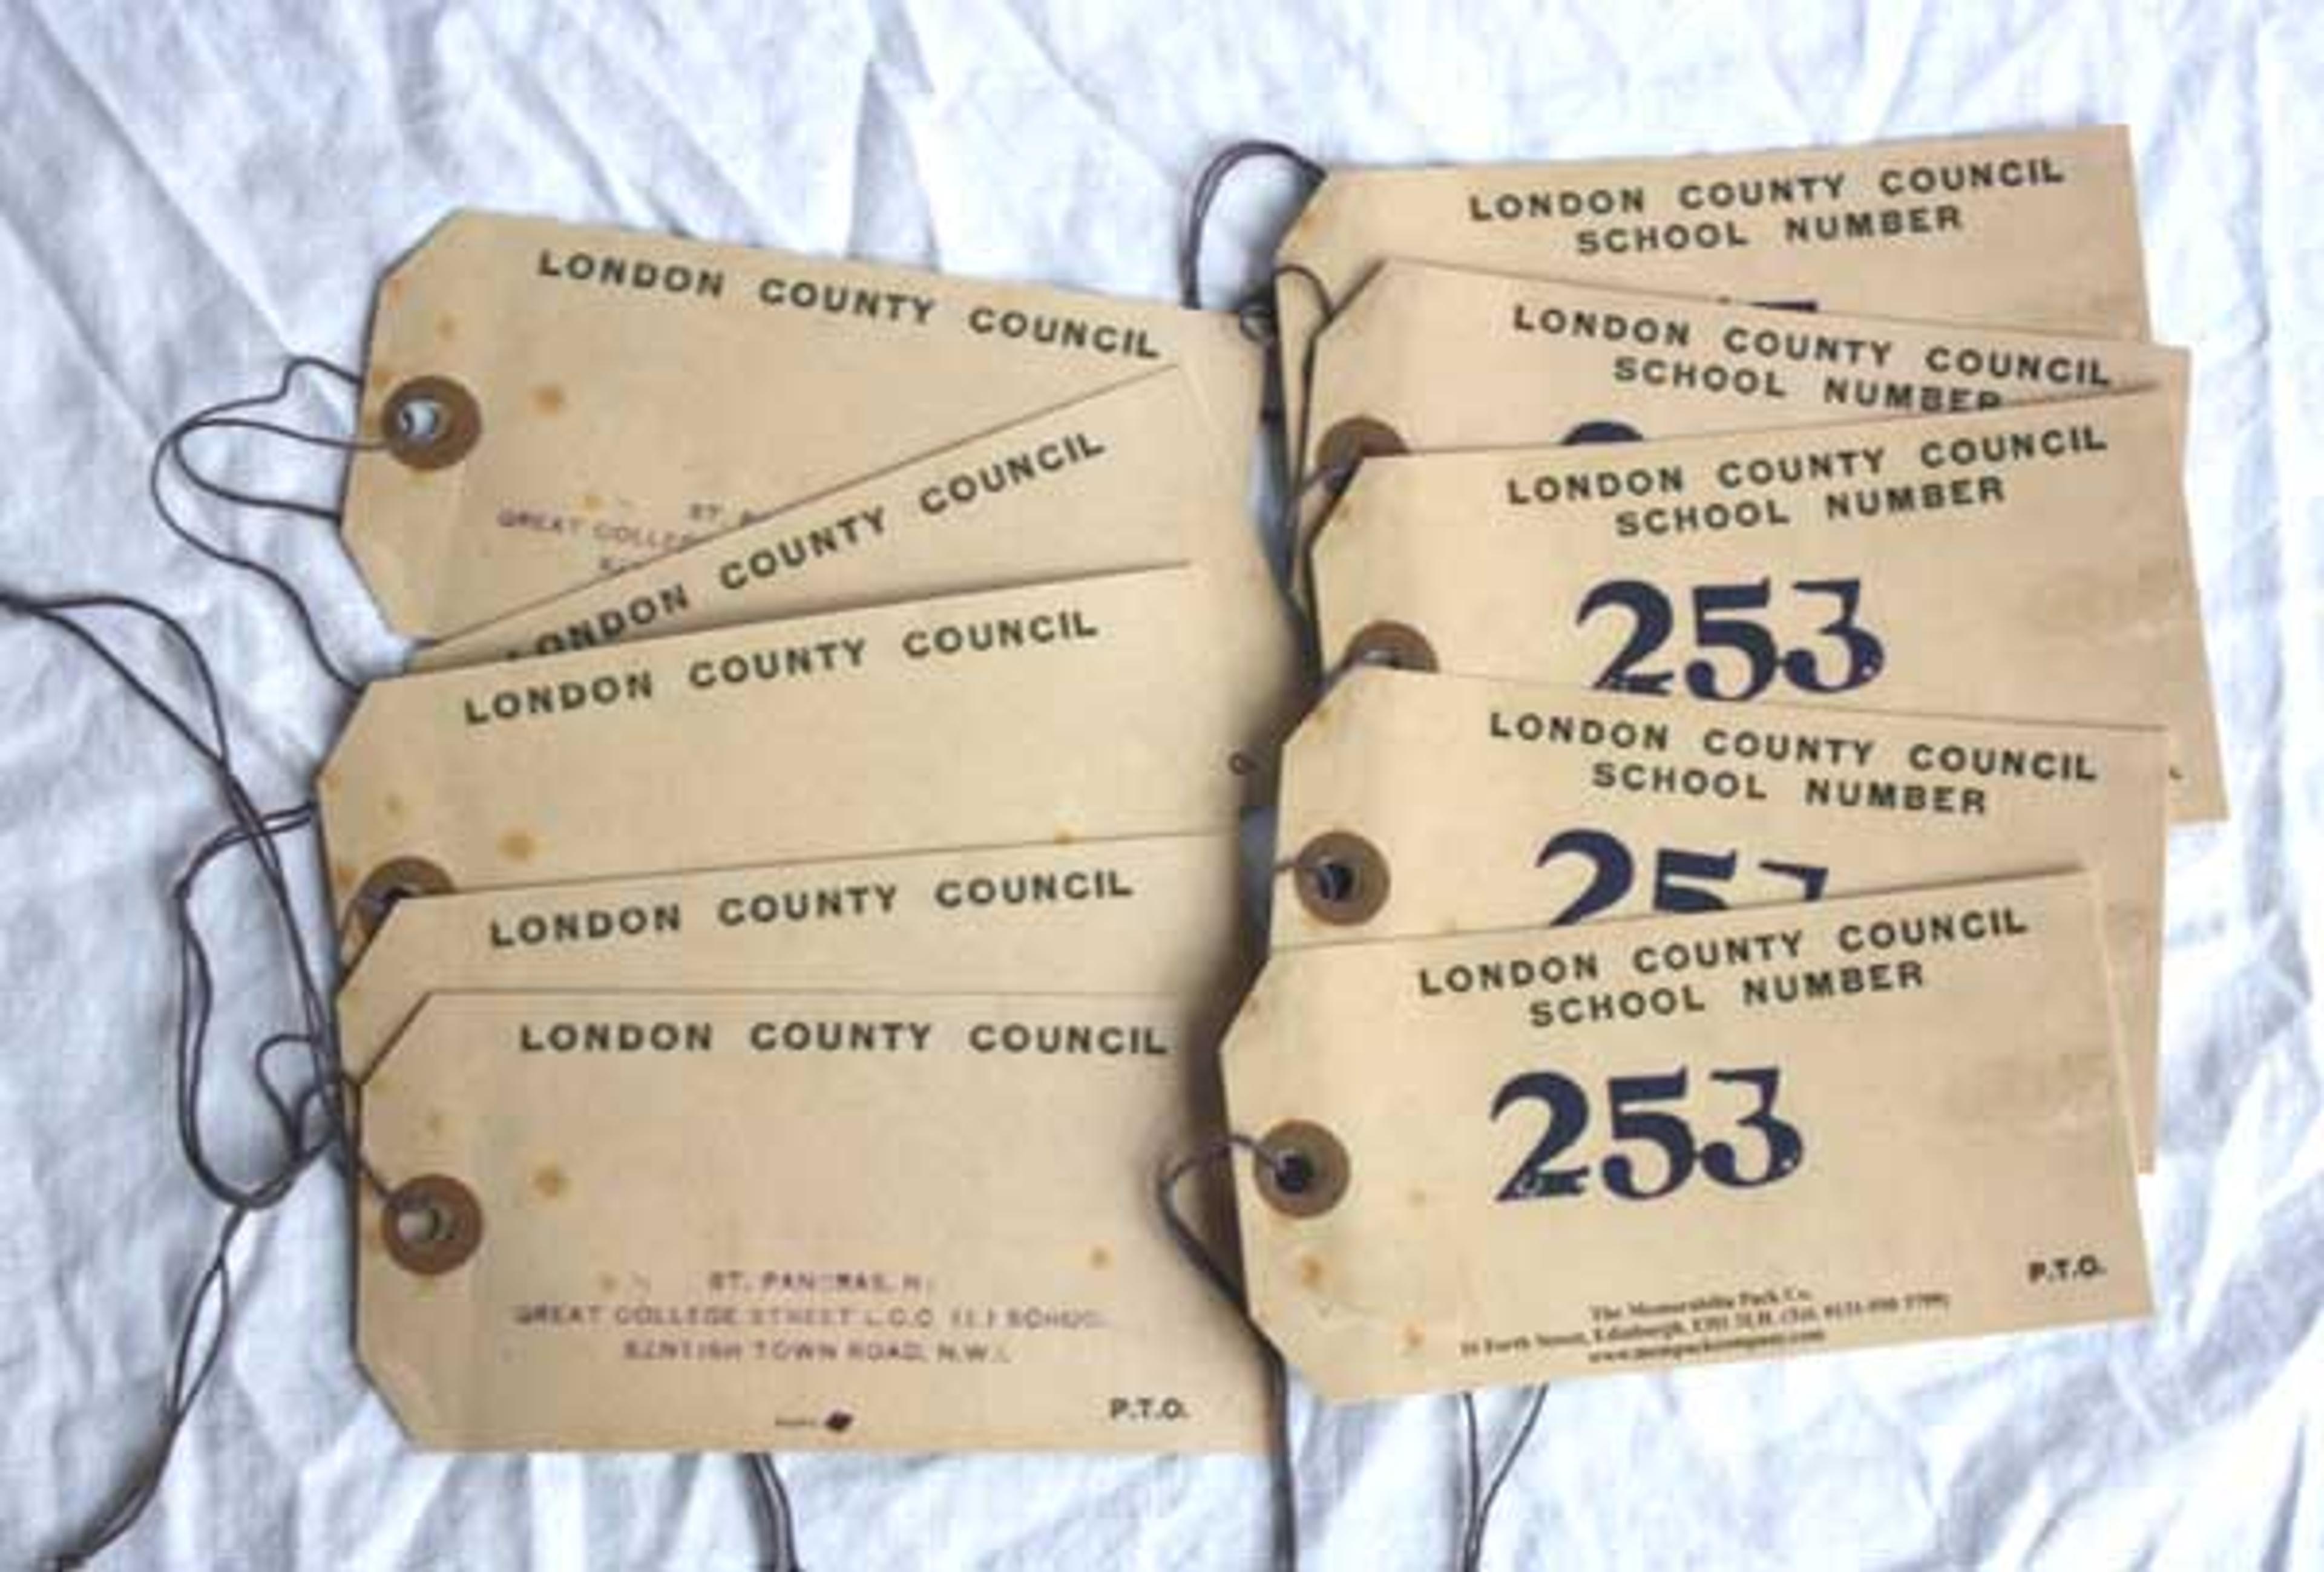 LONDON COUNTY COUNCIL
ST.
GREAT COLLEGE
LONDON COUNTY COUNCIL
LONDON COUNTY COUNCIL
LONDON COUNTY COUNCIL
LONDON COUNTY COUNCIL
ST. PANCRAS, N.
GREAT COLLEGE STREET L.C.C. SCHOOL
KENTISH TOWN ROAD, N.W.1.
P.T.O.
LONDON COUNTY COUNCIL
SCHOOL NUMBER
LONDON COUNTY COUNCIL
SCHOOL NUMBER
LONDON COUNTY COUNCIL
SCHOOL NUMBER
253
LONDON COUNTY COUNCIL
SCHOOL NUMBER
253
LONDON COUNTY COUNCIL
SCHOOL NUMBER
253
P.T.O.
The Memorabilia Pack Co.
Forth Street, Edinburgh, EH1 3LH. (Tel.
www.mempackcompany.com